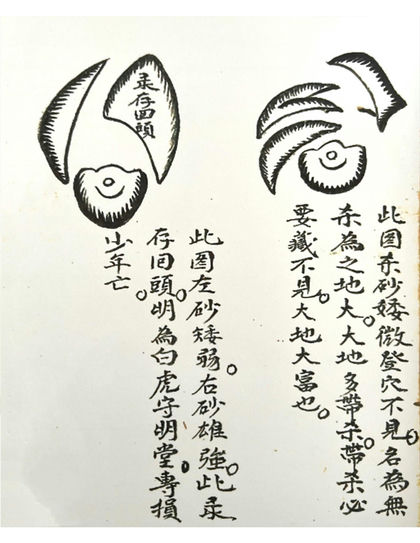 此图杀砂婑微登穴不見。名為無
杀為之地大。大地多帶杀。帶杀必
要藏不見。大地大富也。
彔存回頭
此图左砂矮弱。右砂雄強。此彔
存回頭。明為白虎守明堂。專損
少年亡。